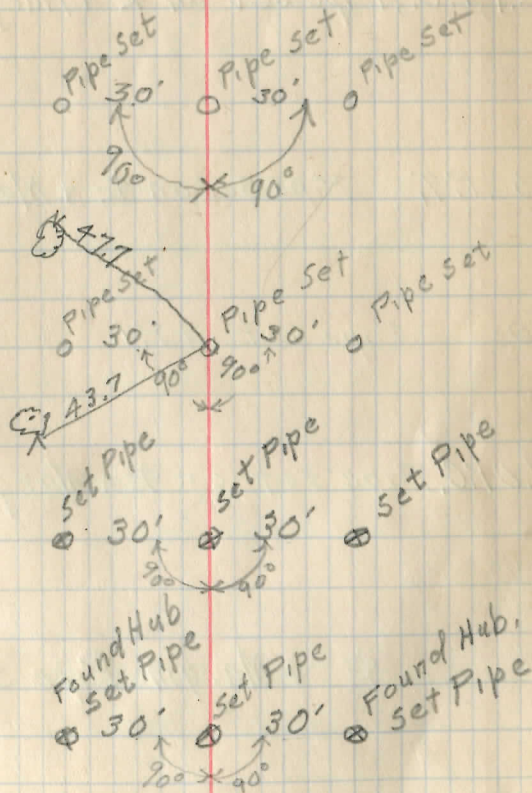 Pipe Set
Pipe Set
Pipe Set
30'
30'
90°
90°
47.7
Pipe Set
Pipe Set
Pipe Set
30'
30'
90°
90°
43.7
Set Pipe
Set Pipe
Set Pipe
30'
30'
90°
90°
Found Hub
Set Pipe
Set Pipe
Found Hub.
Set Pipe
30'
30'
90°
90°